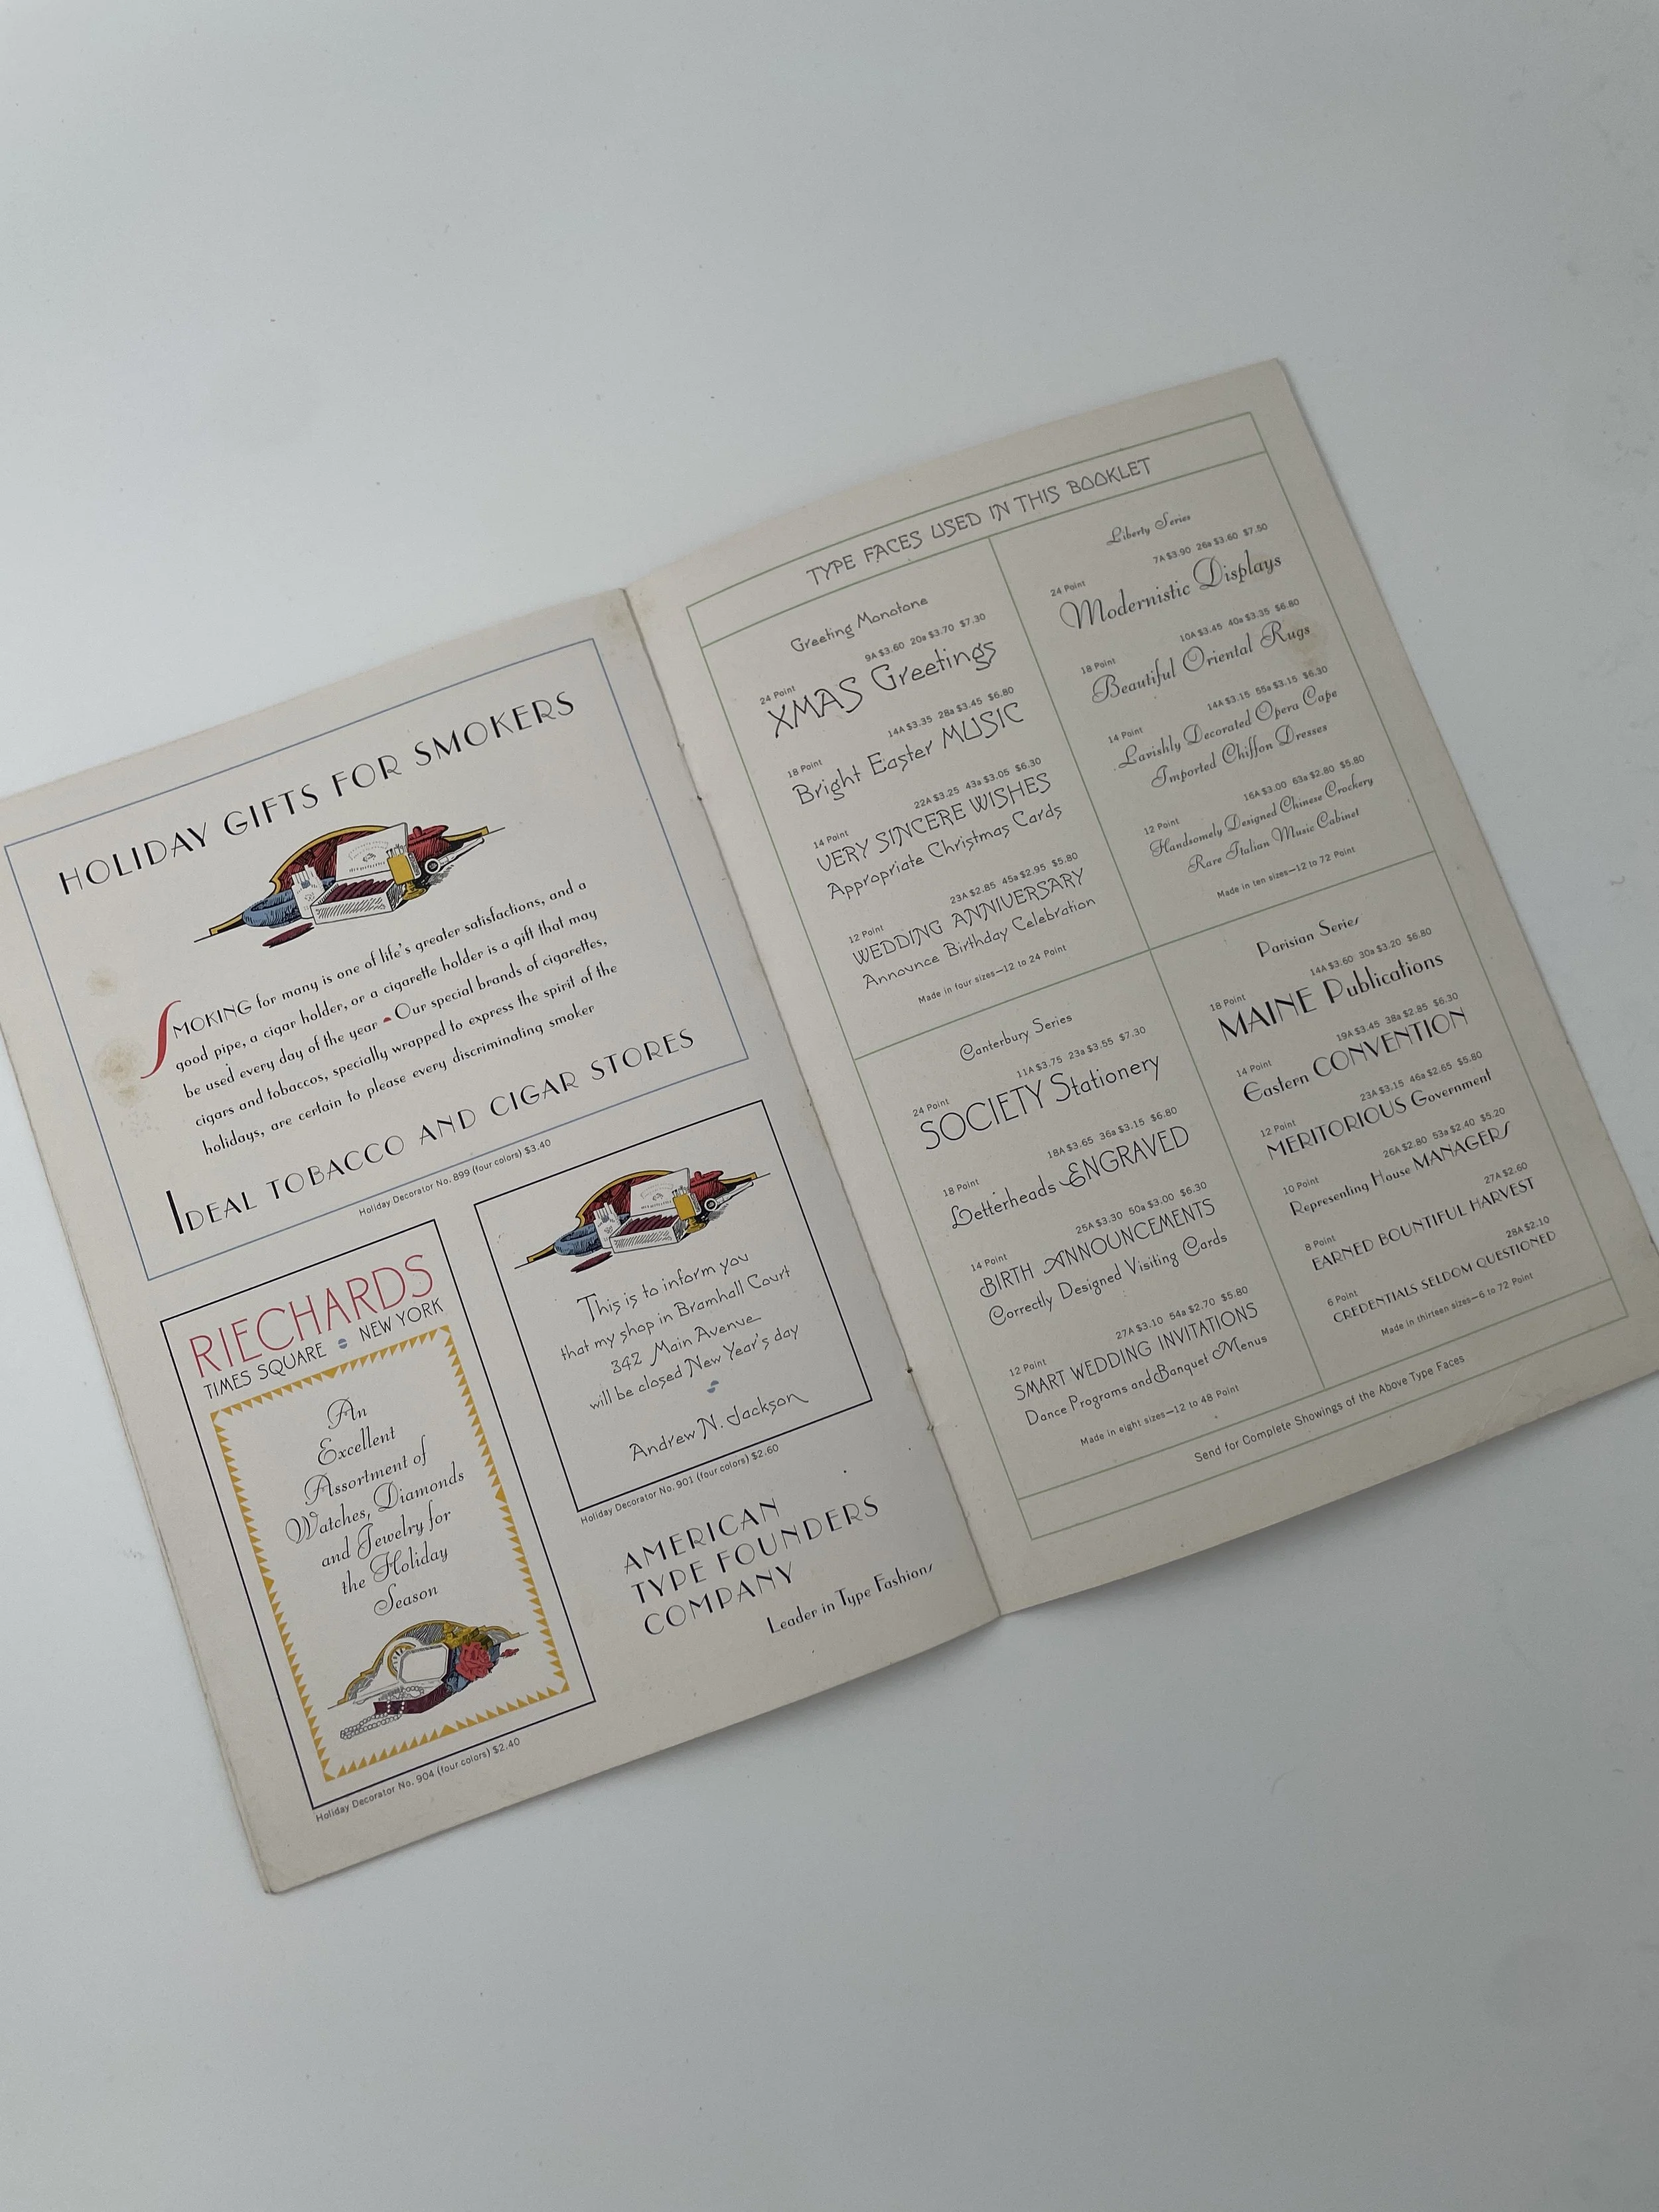 HOLIDAY GIFTS FOR SMOKERS
SMOKING for many is one of life's greater satisfactions, and a
good pipe, a cigar holder, or a cigarette holder is a gift that may
be used every day of the year Our special brands of cigarettes,
cigars and tobaccos, specially wrapped to express the spirit of the
holidays, are certain to please every discriminating smoker
IDEAL TOBACCO AND CIGAR STORES
Holiday Decorator No. 899 (four colors) $3.40
RIECHARDS
TIMES SQUARE NEW YORK
An
Excellent
Assortment of
Watches, Diamonds
and Jewelry for
the Holiday
Season
Holiday Decorator No. 904 (four colors) $2.40
This is to inform you
that my shop in Bramhall Court
342 Main Avenue
will be closed New Year's day
Andrew N. Jackson
Holiday Decorator No. 901 (four colors) $2.60
AMERICAN
TYPE FOUNDERS
COMPANY
Leader in Type Fashions
TYPE FACES USED IN THIS BOOKLET
Greeting Monotone
24 Point 9A $3.60 20a $3.70 $7.30
XMAS Greetings
18 Point 14A $3.35 28a $3.45 $6.80
Bright Easter MUSIC
14 Point 22A $3.25 43a $3.05 $6.30
VERY SINCERE WISHES
Appropriate Christmas Cards
12 Point 23A $2.85 45a $2.95 $5.80
WEDDING ANNIVERSARY
Announce Birthday Celebration
Made in four sizes—12 to 24 Point
Liberty Series
24 Point 7A $3.90 26a $3.60 $7.50
Modernistic Displays
18 Point 10A $3.45 40a $3.35 $6.80
Beautiful Oriental Rugs
14 Point 14A $3.15 55a $3.15 $6.30
Lavishly Decorated Opera Cape
Imported Chiffon Dresses
12 Point 16A $3.00 63a $2.80 $5.80
Handsomely Designed Chinese Crockery
Rare Italian Music Cabinet
Made in ten sizes—12 to 72 Point
Canterbury Series
24 Point 11A $3.75 23a $3.55 $7.30
SOCIETY Stationery
18 Point 18A $3.65 36a $3.15 $6.80
Letterheads ENGRAVED
14 Point 25A $3.30 50a $3.00 $6.30
BIRTH ANNOUNCEMENTS
Correctly Designed Visiting Cards
12 Point 27A $3.10 54a $2.70 $5.80
SMART WEDDING INVITATIONS
Dance Programs and Banquet Menus
Made in eight sizes—12 to 48 Point
Parisian Series
18 Point 14A $3.60 30a $3.20 $6.80
MAINE Publications
14 Point 19A $3.45 38a $2.85 $6.30
Eastern CONVENTION
12 Point 23A $3.15 46a $2.65 $5.80
MERITORIOUS Government
10 Point 26A $2.80 53a $2.40 $5.20
Representing House MANAGERS
8 Point 27A $2.60
EARNED BOUNTIFUL HARVEST
6 Point 28A $2.10
CREDENTIALS SELDOM QUESTIONED
Made in thirteen sizes—6 to 72 Point
Send for Complete Showings of the Above Type Faces